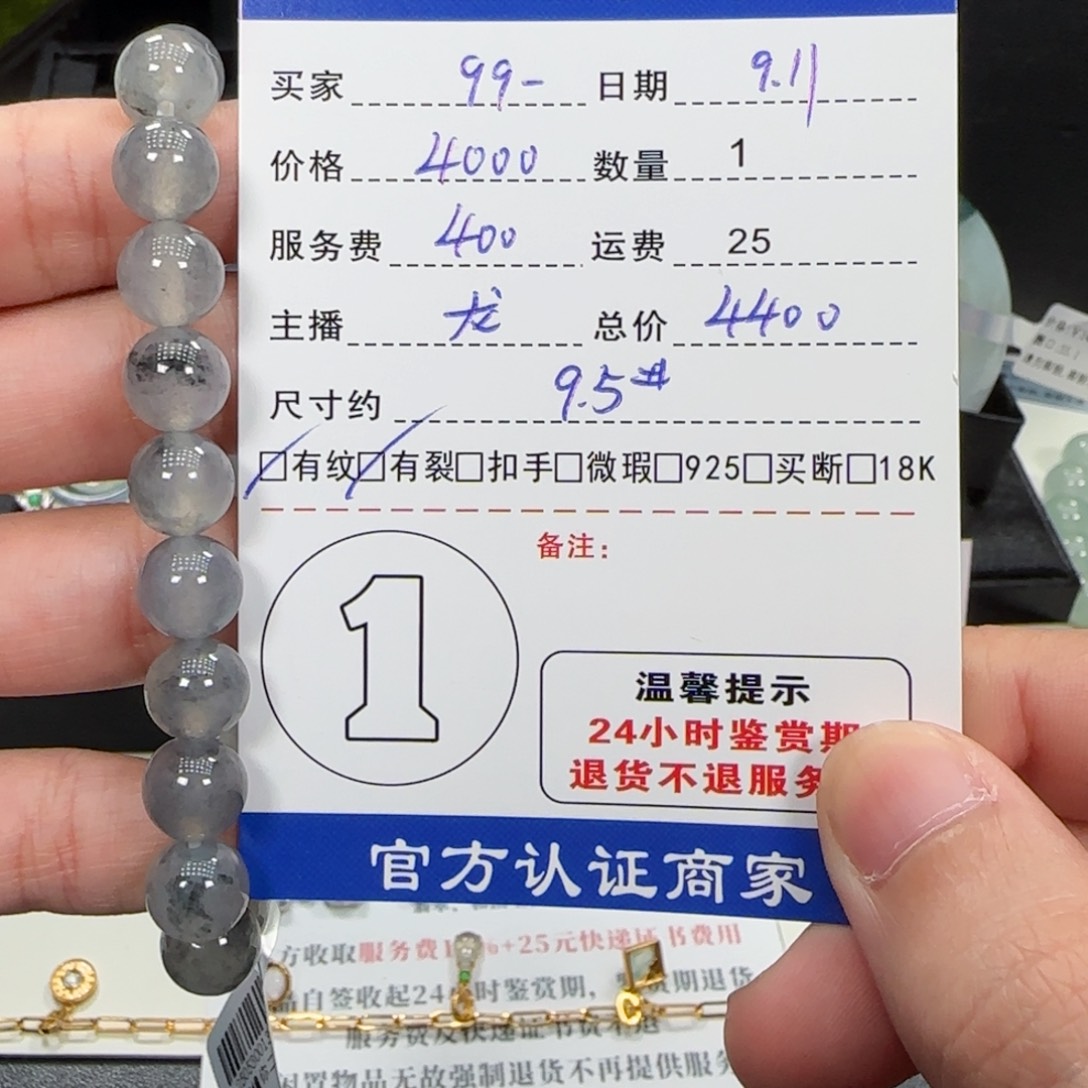 买家 99- 日期 9.11
价格 4000 数量 1
服务费 400 运费 25
主播 龙 总价 4400
尺寸约 9.5#
□有纹□有裂□扣手□微瑕□925□买断□18K
备注：
1
温馨提示
24小时鉴赏期
退货不退服务
官方认证商家
方收取服务费1 %+25元快递证书费用
品自签收起24小时鉴赏期， 赏期退货
服务费及快递证书费不退
闲置物品无故强制退货不再提供服务